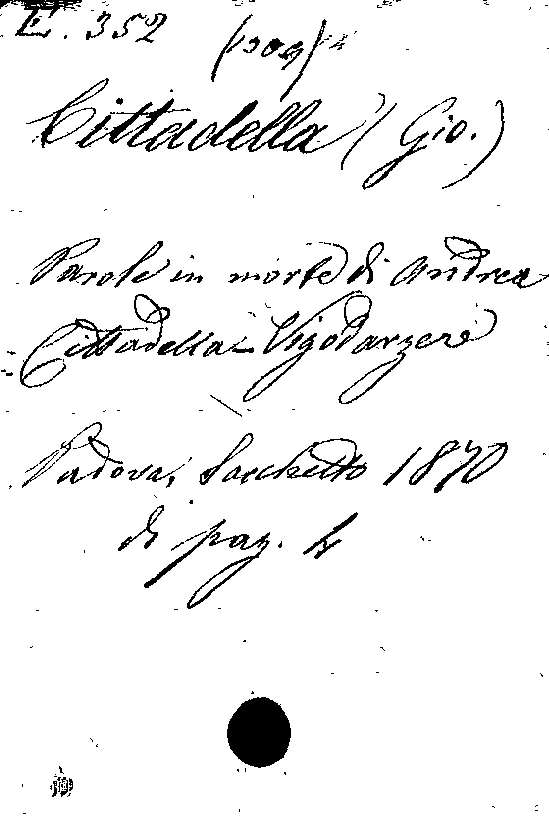 E. 352
Cittadella (Gio.)
Parole in morte di Andrea
Cittadella-Vigodarzere
Padova, Sacchetto 1870
di pag. 4